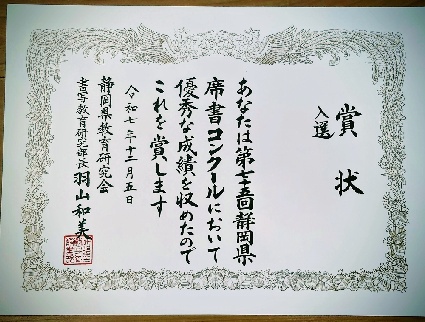 賞状
入選
あなたは第七十五回静岡県
席書コンクールにおいて
優秀な成績を収めたので
これを賞します
令和七年十二月五日
静岡県教育研究会
書写教育研究部長 羽山和美